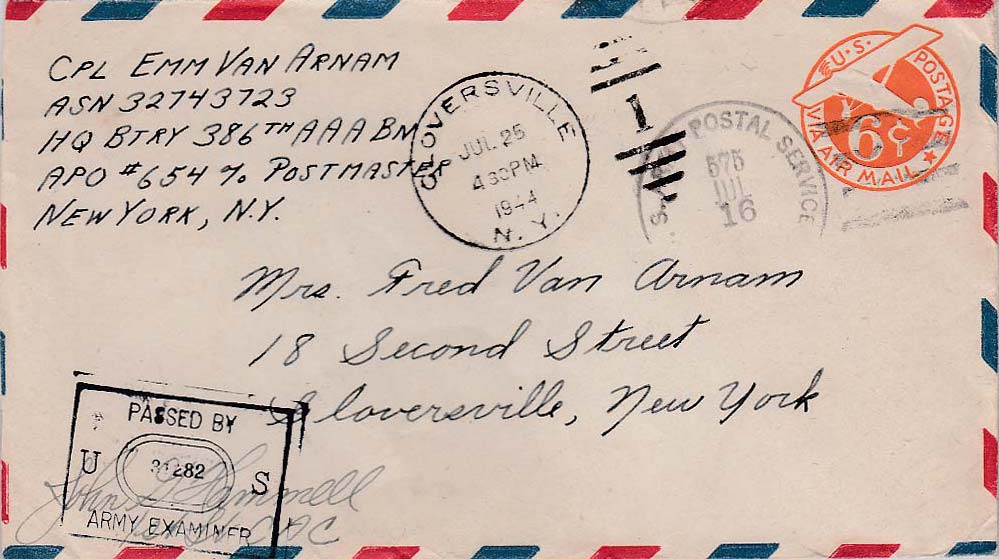 CPL EMM VAN ARNAM
ASN 32743723
HQ BTRY 386TH AAA BN
APO #654 % POSTMASTER
NEW YORK, N.Y.
GLOVERSVILLE
JUL 25
4 30 PM
1944
N.Y.
1
POSTAL SERVICE
575
JUL
16
U.S. POSTAGE
6¢
VIA AIR MAIL
Mrs. Fred Van Arnam
18 Second Street
Gloversville, New York
PASSED BY
U 31282 S
ARMY EXAMINER
John
CAC